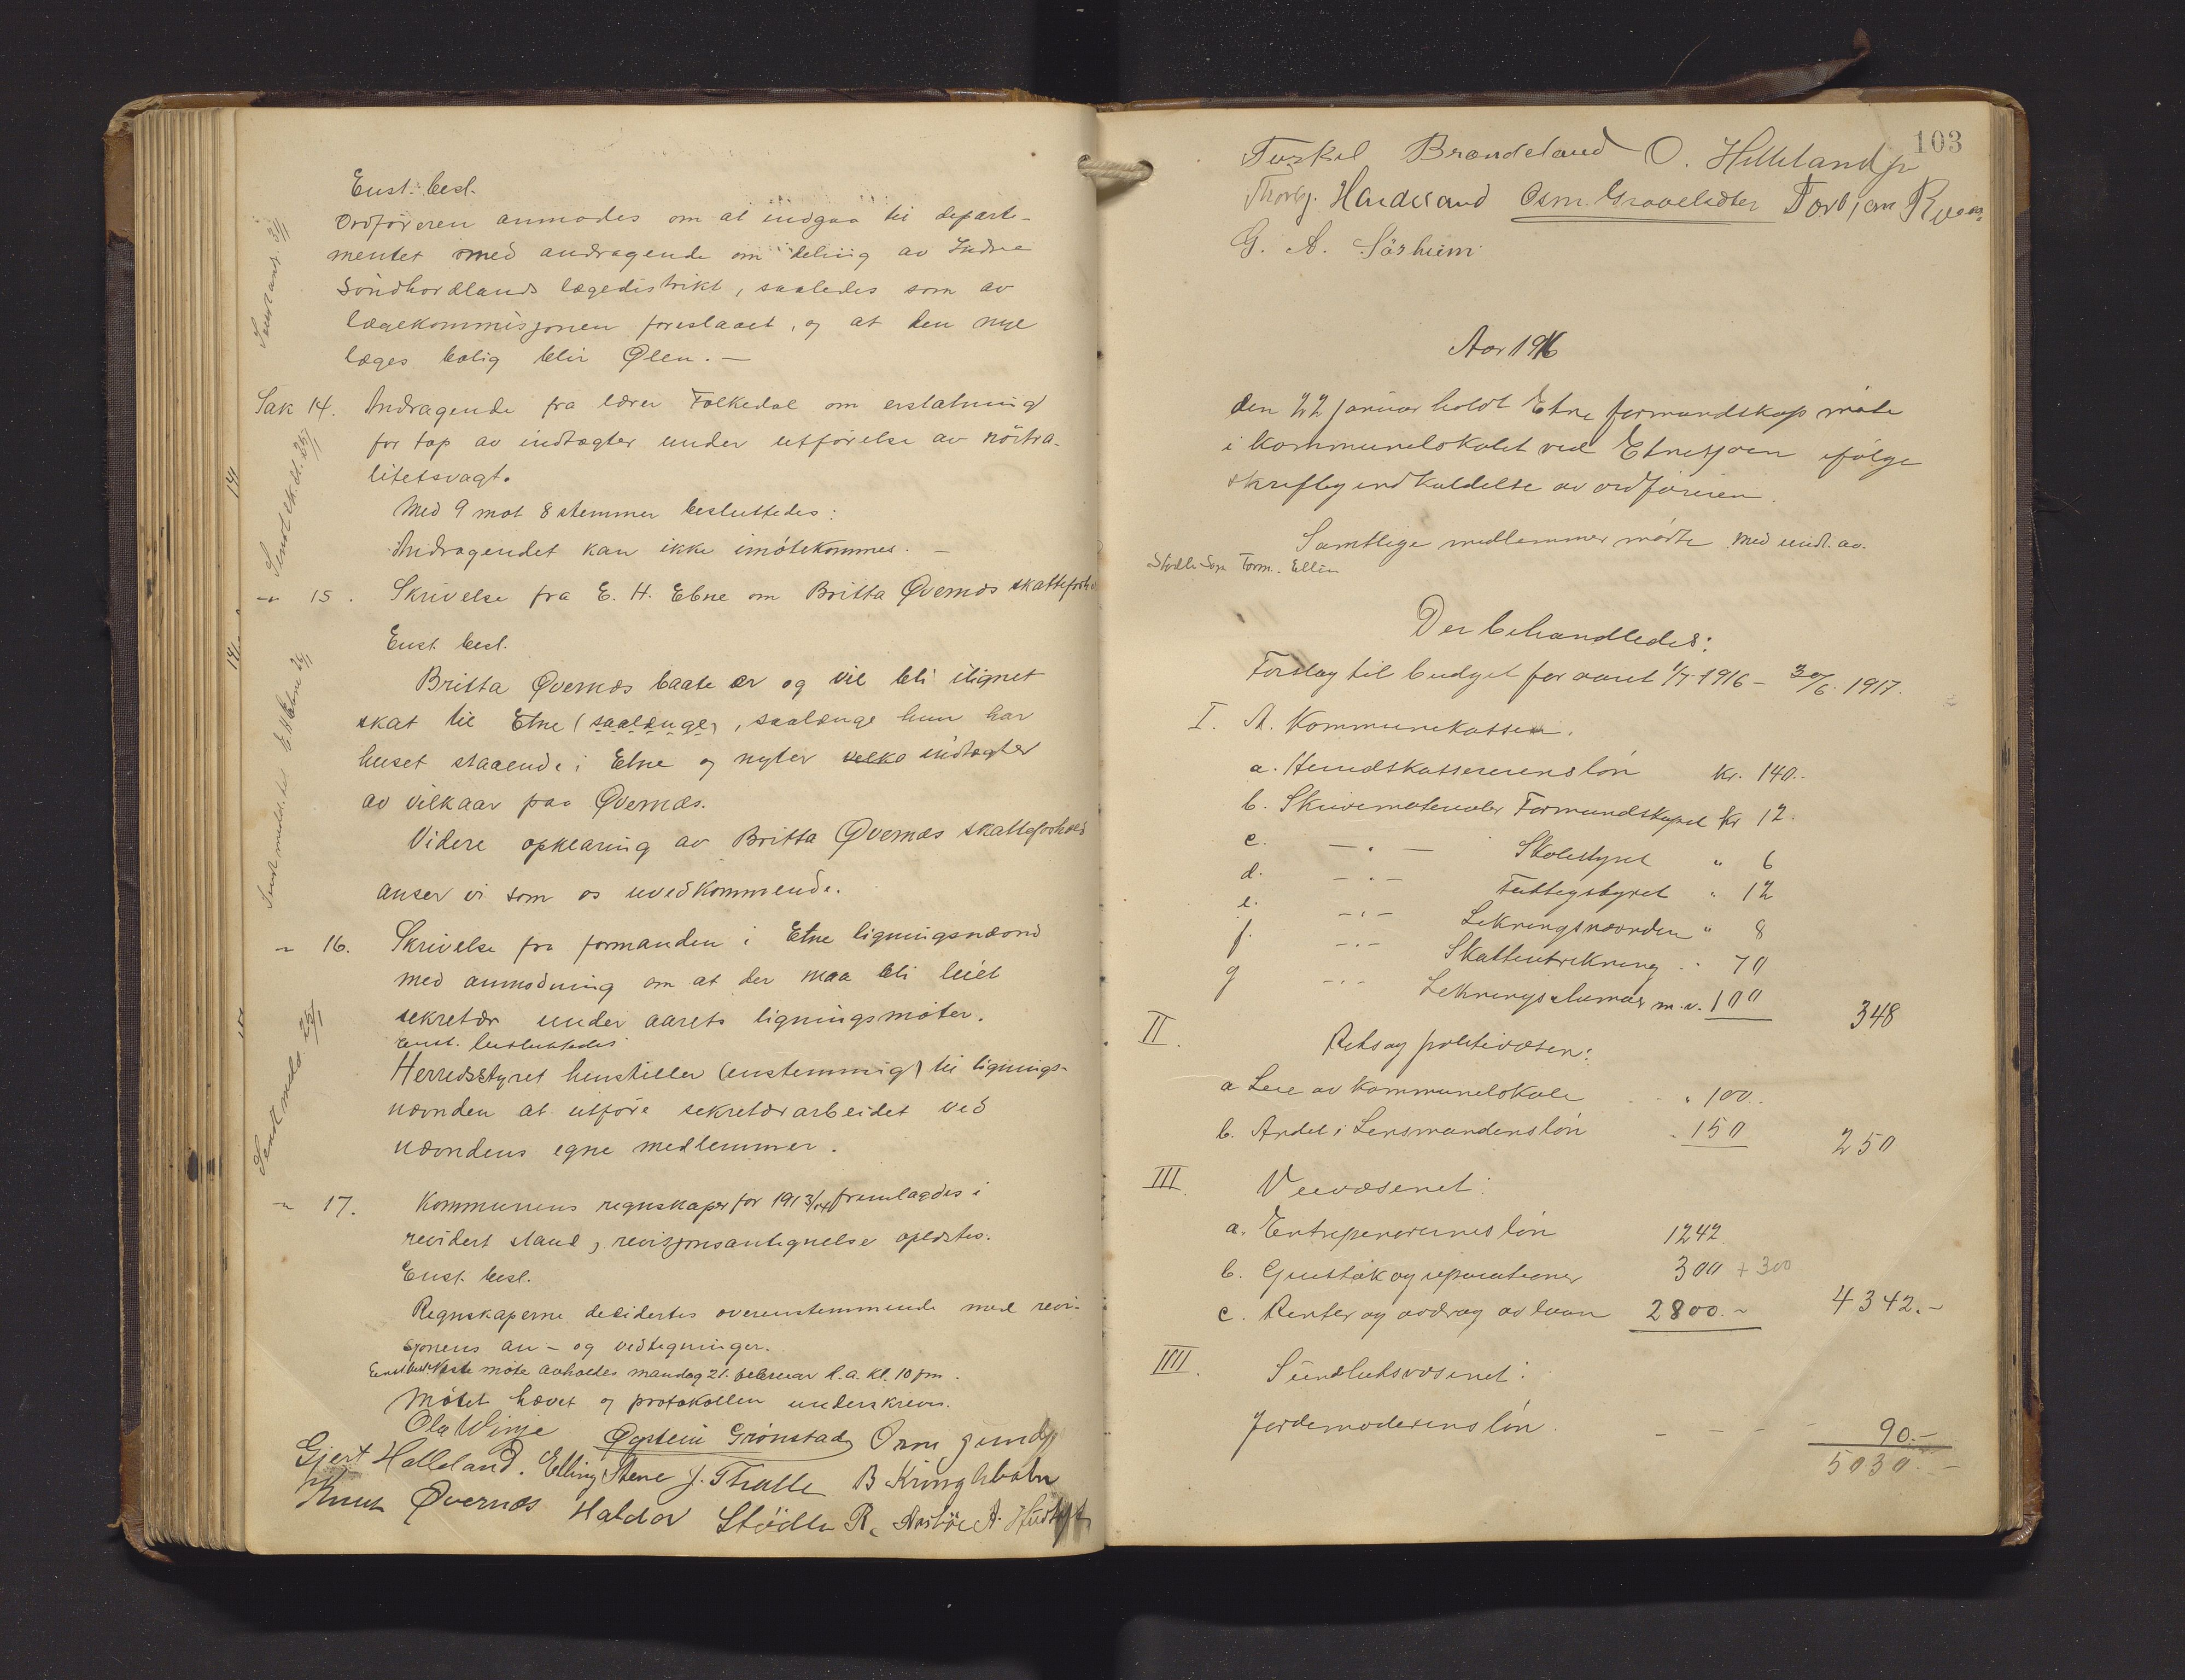 Enst. besl.
Ordføreren anmodes om at indgaa til departe-
mentet med andragende om deling av Indre
Söndhordlands lægedistrikt, saaledes som av
lægekommisjonen foreslaaet, og at den nye
læges bolig blir Ølen. —
Sendt ands. 31/1
Sak 14. Andragende fra lærer Folkedal om erstatning
for tap av indtægter under utförelse av nöitra-
litetsvagt.
Med 9 mot 8 stemmer besluttedes:
Andragendet kan ikke imötekommes. —
Sendt 25/1
-"- 15. Skrivelse fra E. H. Etne om Britta Øvernæs skatteforh
Enst. besl.
Britta Øvernæs baate er og vil bli ilignet
skat til Etne (saalænge), saalænge hun har
huset staaende i Etne og nyter velko indtægter
av vilkaar paa Øvernæs.
Videre opklaring av Britta Øvernæs skatteforhold
anser vi som os uvedkommende.
Sendt meddt. til E. H. Etne 26/1
" 16. Skrivelse fra formanden i Etne ligningsnævnd
med anmodning om at der maa bli leiet
sekretær under aarets ligningsmöter.
Enst. besluttedes
Herredsstyret henstiller (enstemmig) til lignings-
nævnden at utföre sekretærarbeidet ved
nævndens egne medlemmer.
Sendt medd 25/1
" 17. Kommunens regnskaper for 1913/14 fremlagdes i
revidert stand, revisjonsantegnelse oplæstes.
Enst. besl.
Regnskaperne desidertes overenstemmende med revi-
sjonens an- og vedtegninger.
Enst. besl. Næste möte avholdes mandag 21. februar d. a. kl. 10 fm.
Mötet hævet og protokollen underskreven.
Ola Winje Øystein Grönstad Orm Zundy
Gjert Halleland. Elling Stene J. Tralle B Kringlebotn
Knut Øvernæs Haldor Stödle R. Aarböe A.
103
Torkel Brandeland O. Helleland jr
Thorbj. Hardeland Osm. Grovelæter Torbjörn
G. A. Sörheim
Aar 1916
den 22 januar holdt Etne formandskap möte
i kommunelokalet ved Etnesjøen ifölge
skriftlig indkaldelse av ordføreren.
Samtlige medlemmer mödte med undt. av.
Stødle Form. Ellin
Der behandledes:
Forslag til budget for aaret 1/7 1916 – 30/6 1917.
I. A. Kommunekassen.
a. Herredskassererens lön kr. 140.
b. Skrivematerialer Formandskapet kr 12.
c. — " — Skolestyret " 6
d. — " — Fattigstyret " 12
e. — " — Lekningsnævnden " 8
f. — " — Skatteutrekning " 70
g — " — Lekningsskemaer m.v. 100 348
II. Rets og politivæsen:
a Leie av kommunelokale " 100.
b. Andel i Lensmandens lön " 150 250
III. Veivæsenet:
a. Entreprenörernes lön 1242
b. Grustak og reparationer 300 + 300
c. Renter og avdrag av laan 2800.– 4342.–
IIII. Sundhetsvæsenet:
Jordemoderens lön. – – – – 90.–
5030.–